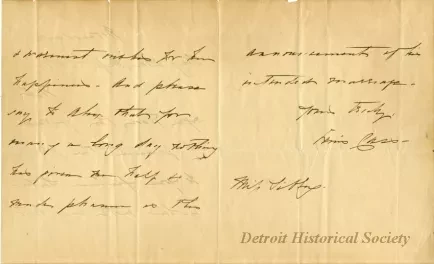 & warmest wishes for her
happiness. And please
say to her that for
many a long day nothing
has given me half so
much pleasure as the
announcement of her
intended marriage.
Yours truly,
Lewis Cass
Mrs. Sibley.
Detroit Historical Society